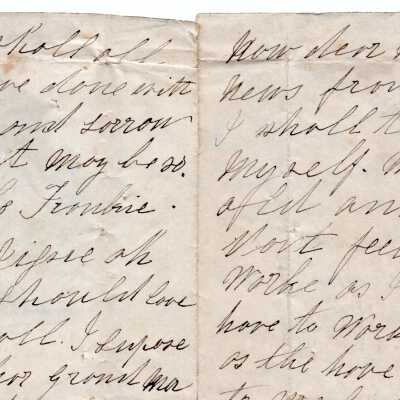 shall all
ve done with
and sorrow
t may be so.
Trouble.
oh
should love
all. I supose
her grand ma
Now dear
News from
I shall t
Myself.
afed an
Wort feel
Worke as I
have to Work
as the have
to